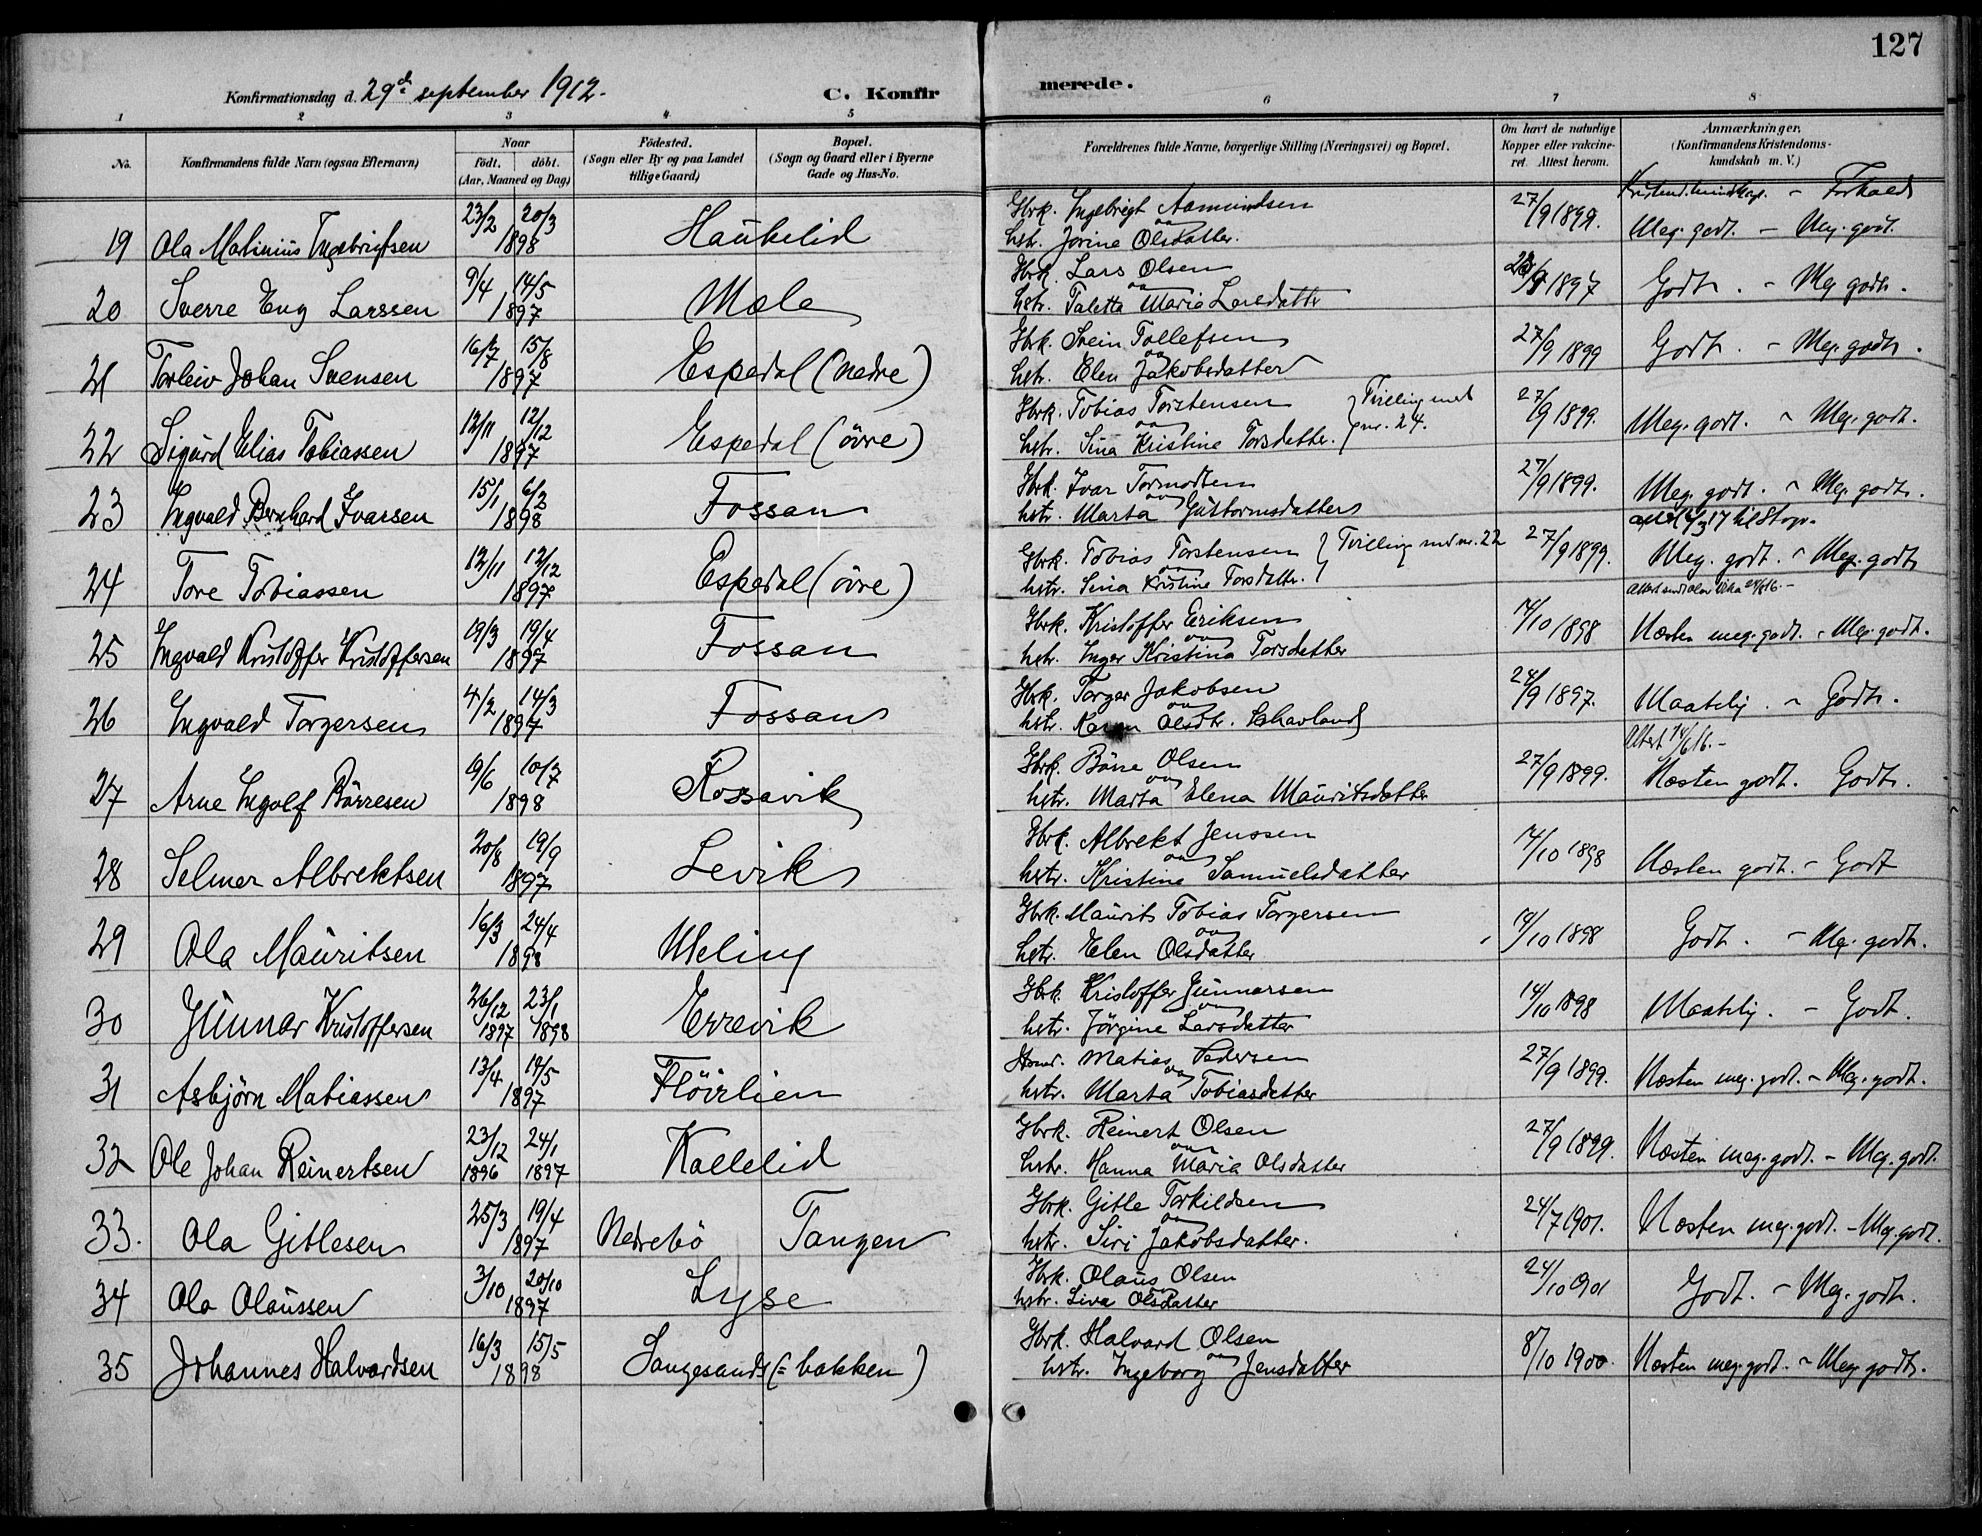 127
Konfirmationsdag d. 29de september 1912.
C. Konfirmerede.
1 2 3 4 5 6 7 8
No.
Konfirmandens fulde Navn (ogsaa Efternavn)
Naar
født. døbt.
(Aar, Maaned og Dag)
Fødested.
(Sogn eller By og paa Landet
tillige Gaard)
Bopæl.
(Sogn og Gaard eller i Byerne
Gade og Hus-No.
Forældrenes fulde Navne, borgerlige Stilling (Næringsvei) og Bopæl.
Om havt de naturlige
Kopper eller vaccine-
ret. Attest herom.
Anmærkninger.
(Konfirmandens Kristendoms-
kundskab m. V.)
Kristend.kundskap. - Forhold
19 Ola Matinius Ingebrigtsen 23/2 20/3 1898 Haukelid Gbrk. Ingebrigt Aamundsen 27/9 1899. Meg. godt. - Meg. godt.
hstr. Jorine Olsdatter.
20 Sverre Eng Larssen 9/4 14/5 1897 Mæle Gbrk. Lars Olsen 1897 Godt. - Meg godt.
hstr. Taletta Maria Larsdatter
21 Torleiv Johan Svensen 16/7 15/8 1897 Espedal (nedre) Gbrk. Svein Tollefsen 27/9 1899 Godt. - Meg. godt.
hstr. Elen Jakobsdatter
22 Sigurd Elias Tobiassen 12/11 12/12 1897 Espedal (övre) Gbrk. Tobias Torstensen } Tvilling med 27/9 1899. Meg. godt. - Meg. godt.
hstr. Sina Kristine Torsdatter. } nr. 24.
23 Ingvald Bernhard Ivarsen 15/1 6/2 1898 Fossan Gbrk. Ivar Tormodsen 27/9 1899. Meg. godt. - Meg. godt.
hstr. Marta Guttormsdatter
24 Tore Tobiassen 12/11 12/12 1897 Espedal (övre) Gbrk. Tobias Torstensen } Tvilling med nr. 22 27/9 1899. Meg. godt. - Meg. godt
hstr. Sina Kristine Torsdatter. }
25 Ingvald Kristoffer Kristoffersen 19/3 19/4 1897 Fossan Gbrk. Kristoffer Eriksen 14/10 1898 Næsten meg. godt. - Meg. godt.
hstr. Inger Kristina Torsdatter
26 Ingvald Torgersen 4/2 14/3 1897 Fossan Gbrk. Torger Jakobsen 24/9 1897. Maatelig. - Godt.
hstr. Karen Olsdtr.
Attest 14/6 16. -
27 Arne Ingolf Börresen 19/6 10/7 1898 Rossavik Gbrk. Börre Olsen 27/9 1899. Næsten godt. Godt.
hstr. Marta Elena Mauritsdatter
28 Selmer Albrektsen 20/8 19/9 1897 Levik Gbrk. Albrekt Jenssen 14/10 1898 Næsten godt. - Godt
hstr. Kristine Samuelsdatter
29 Ola Mauritsen 16/3 24/4 1898 Meling Gbrk. Maurits Tobias Torgersen 14/10 1898 Godt. - Meg. godt.
hstr. Elen Olsdatter
30 Gunnar Kristoffersen 26/12 1897 23/1 1898 Errevik Gbrk. Kristoffer Gunnarsen 14/10 1898 Maatelig. - Godt.
hstr. Jörgine Larsdatter
31 Asbjörn Matiassen 13/4 19/5 1897 Flöirlien Matias Pedersen 27/9 1899. Næsten meg. godt. - Meg. godt.
hstr. Marta Tobiasdatter
32 Ole Johan Reinertsen 23/12 1896 24/1 1897 Kallelid Gbrk. Reinert Olsen 27/9 1899. Næsten meg. godt. - Meg. godt.
hstr. Hanna Maria Olsdatter
33. Ola Gitlesen 25/3 19/4 1897 Nedrebö Tangen Gbrk. Gitle Torkildsen 24/7 1901. Næsten meg. godt. - Meg. godt.
hstr. Siri Jakobsdatter.
34 Ola Olaussen 3/10 20/10 1897 Lyse Gbrk. Olaus Olsen 24/10 901 Godt. - Meg. godt.
hstr. Siva Olsdatter
35 Johannes Halvardsen 16/3 15/5 1898 Sangesand (= bakken) Gbrk. Halvard Olsen 8/10 1900. Næsten meg. godt. - Meg. godt.
hstr. Ingeborg Jensdatter